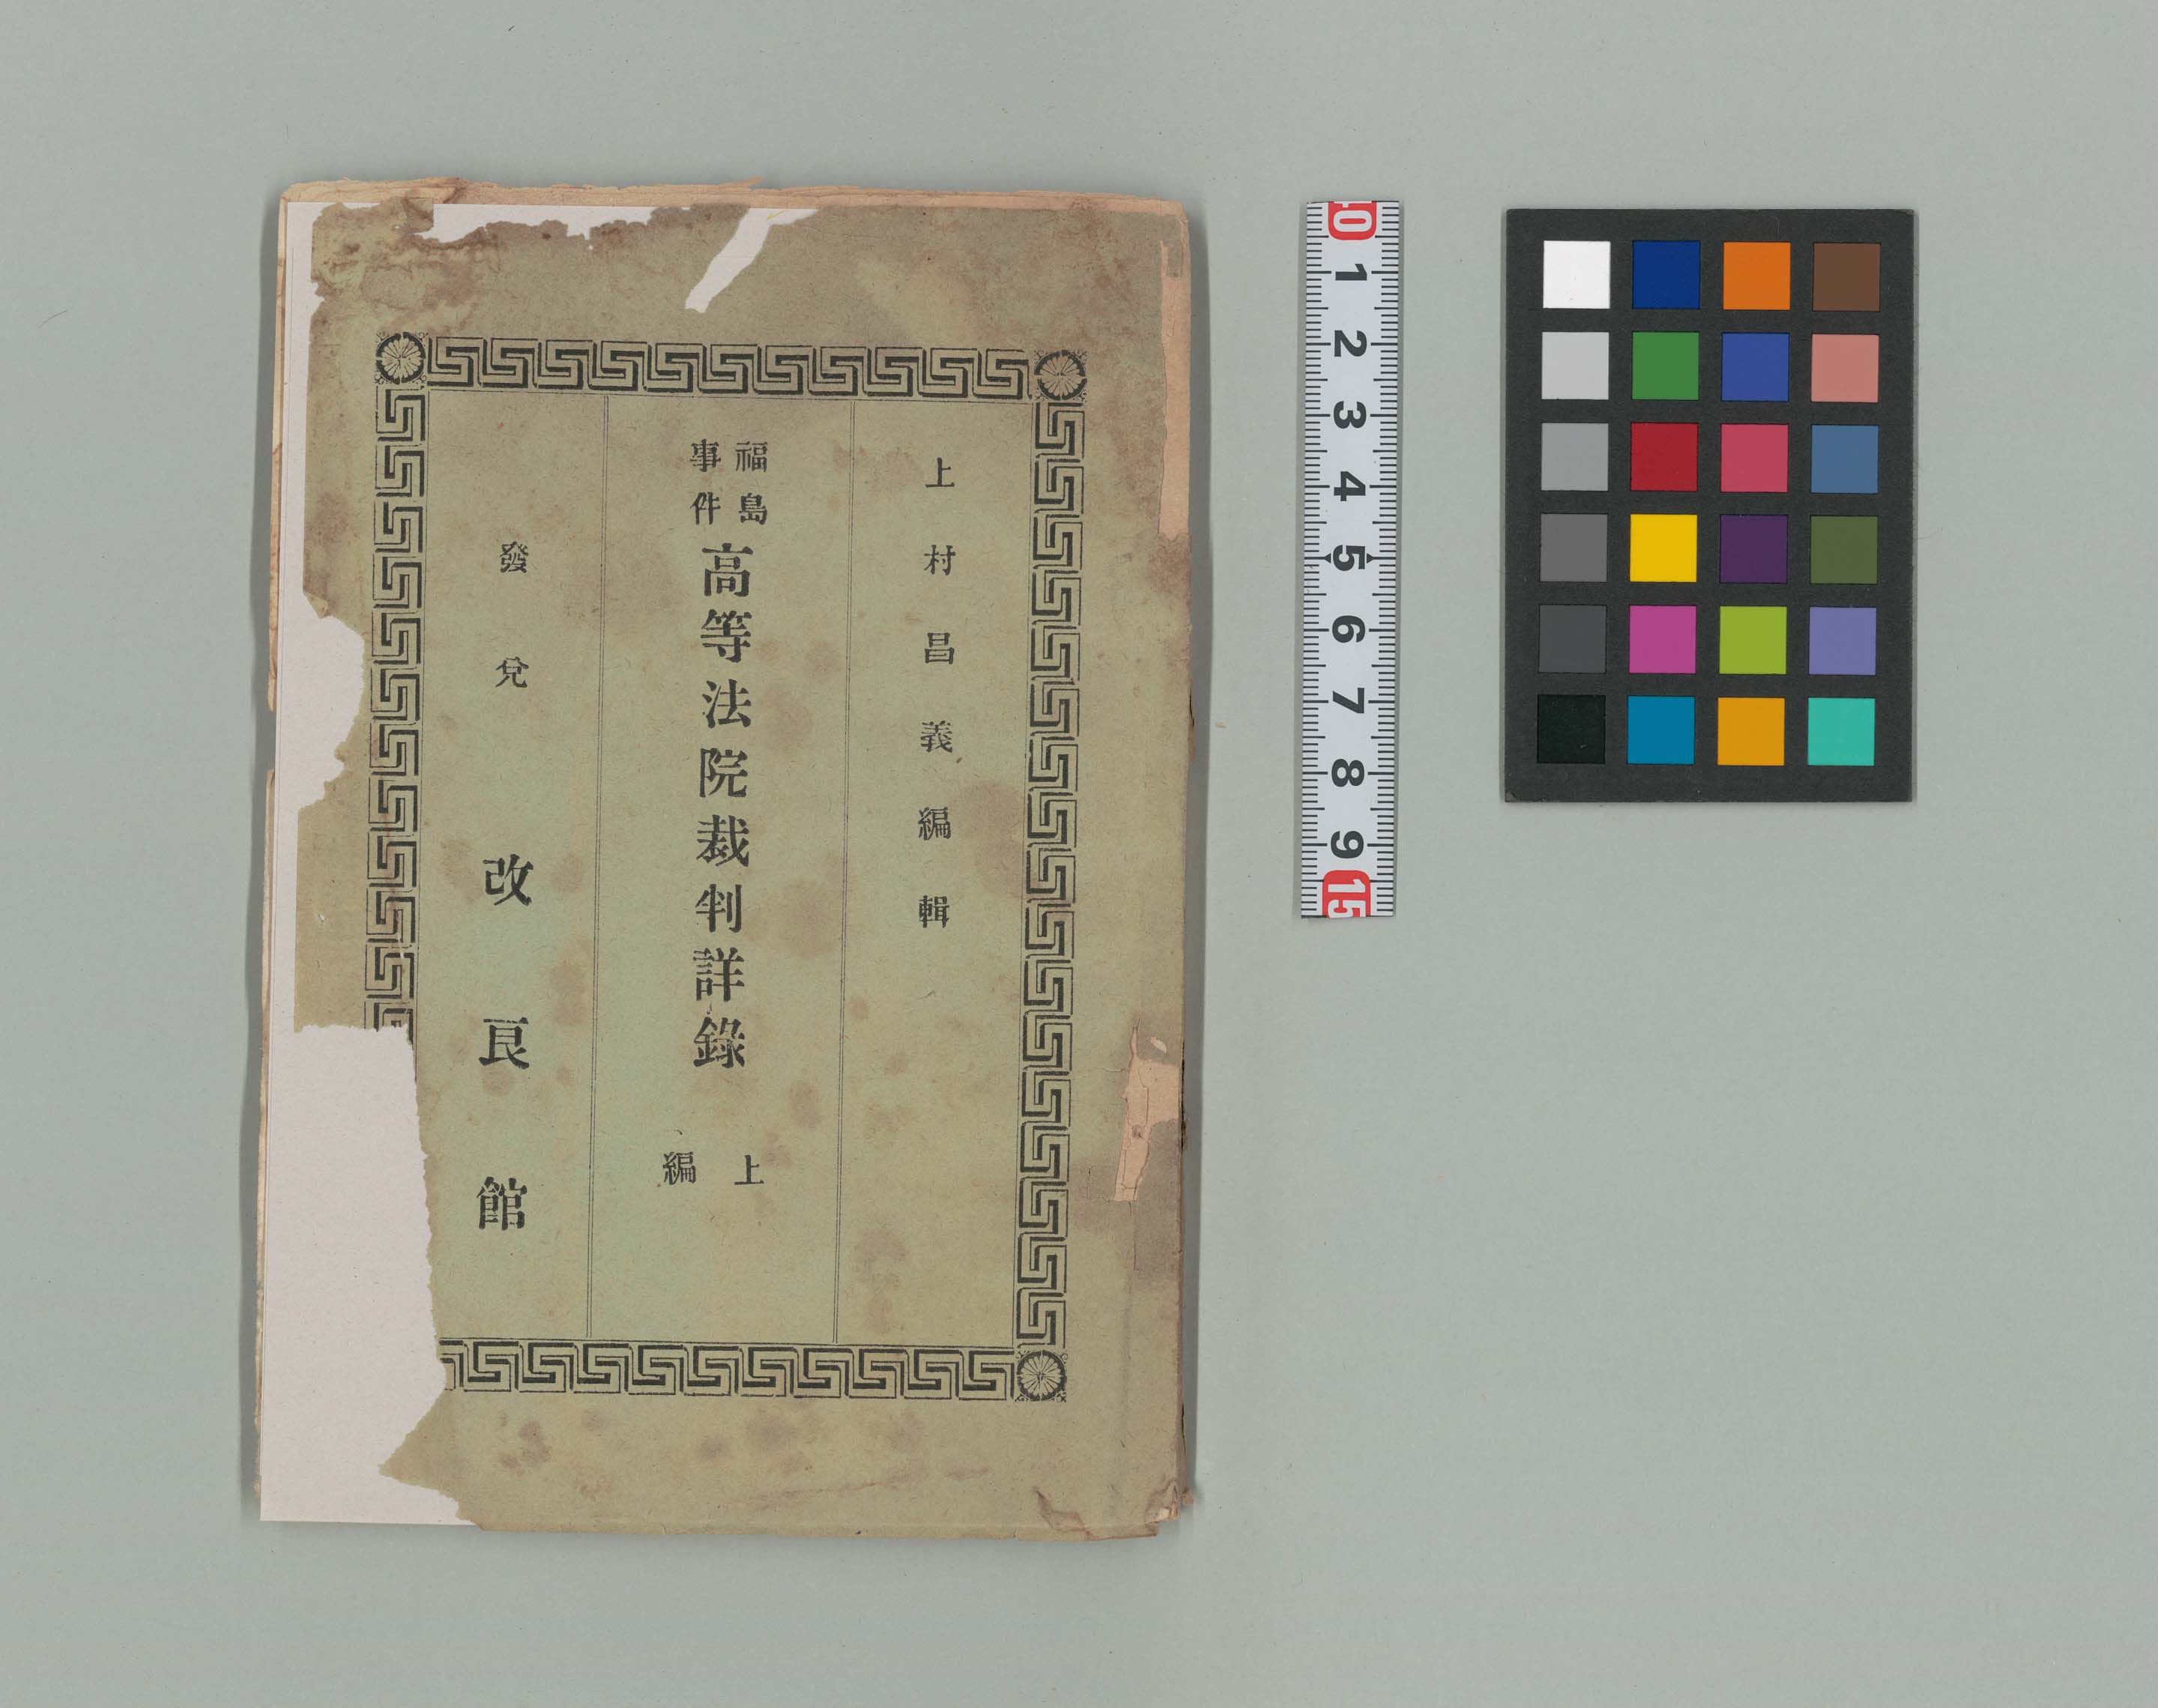 上村昌義編輯
福島
事件
高等法院裁判詳錄
上編
發兌 改良館
10
1
2
3
4
5
6
7
8
9
15